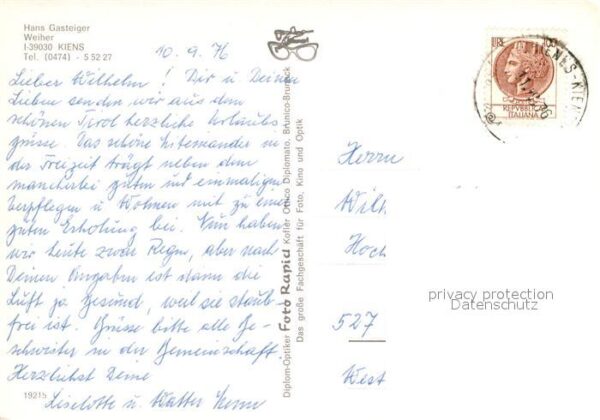 Hans Gasteiger
Weiher
I-39030 KIENS
Tel. (0474) - 5 52 27
10.9.76
Lieber Wilhelm! Dir u Deinen
Lieben senden wir aus dem
schönen Tirol herzliche Urlaubs
grüsse. Das schöne Miteinander in
der Freizeit trägt neben dem
mancherlei guten und einmaligen
Verpflegen u Wohnen mit zu einer
guten Erholung bei. Nun haben
wir heute zwar Regen, aber nach
Deinen Angaben ist dann die
Luft ja Gesund, weil sie staub-
frei ist. Grüsse bitte alle Ge-
schwister in der Gemeinschaft.
Herzlichst Deine
Liselotte u. Walter
19215
Diplom-Optiker Foto Rapid Kofler Ottico Diplomato, Brunico-Bruneck
Das große Fachgeschäft für Foto, Kino und Optik
LIRE
REPVBBLICA
ITALIANA
KIENS
Herrn
Wilh
Hoch
527
West
privacy protection
Datenschutz